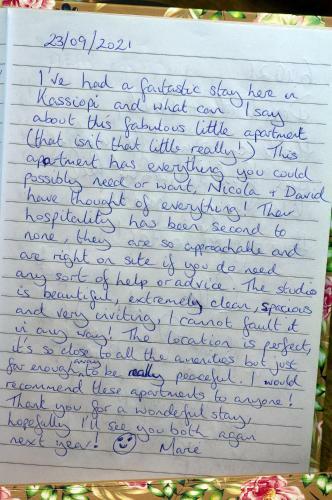 23/09/2021
I've had a fantastic stay here in
Kassiopi and what can I say
about this fabulous little apartment
(that isn't that little really!) This
apartment has everything you could
possibly need or want, Nicola + David
have thought of everything! Their
hospitality has been second to
none, they are so approachable and
are right on site if you do need
any sort of help or advice. The studio
is beautiful, extremely clean, spacious
and very inviting. I cannot fault it
in any way! The location is perfect,
it's so close to all the amenities but just
far enough away to be really peaceful. I would
recommend these apartments to anyone!
Thank you for a wonderful stay,
hopefully I'll see you both again
next year! Marie